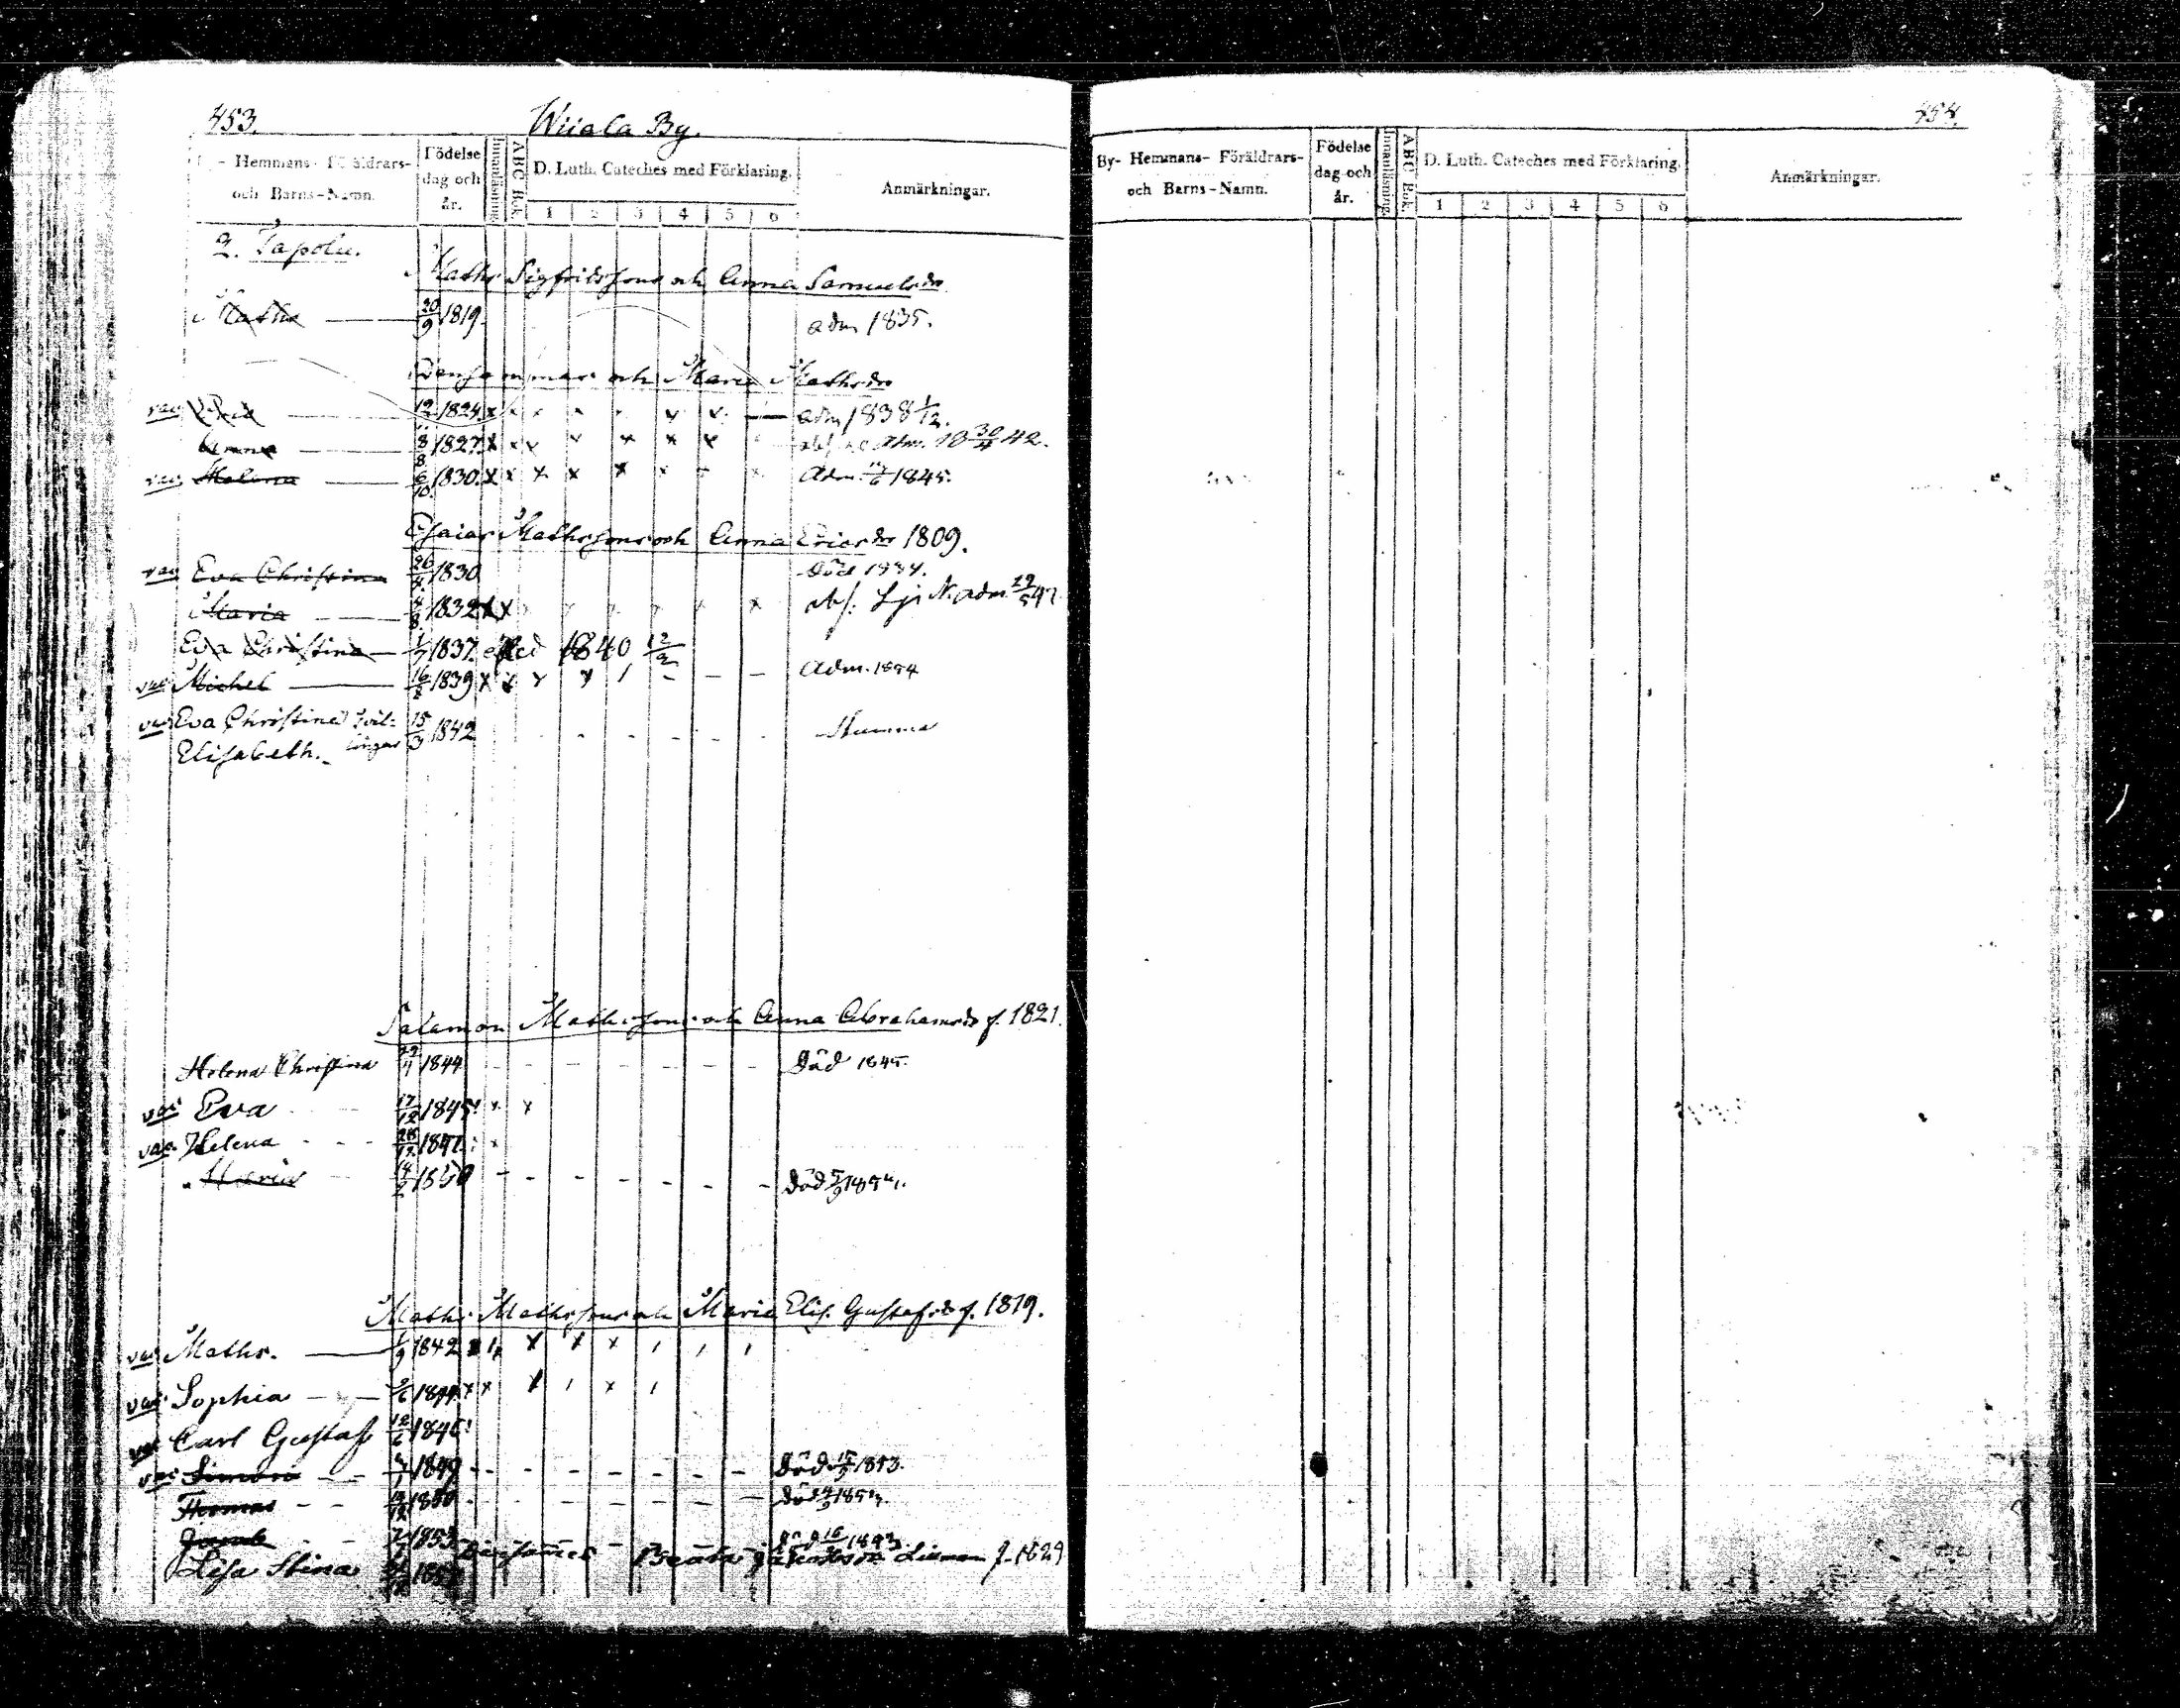 453.
Wiiala By.
Hemmans- Föräldrars-
och Barns-Namn.
Födelse
dag och
år.
Innanläsning.
ABC Bok.
D. Luth. Cateches med Förklaring.
1 2 3 4 5 6
Anmärkningar.
2. Tapola.
Maths Sigfridssons och Anna Samuelsdr
Maths 20/9 1819. adm 1835.
Densammas och Maria Mathsdr
vac 12 1824 x x x x adm 1838
Anna 8/8 1827 x x x x x x x adm. 18 30/4 42.
vac Helena 6/10 1830. x x x x x Adm. 1845.
Esaias Mathssons och Anna Ericsdr 1809.
vac Eva Christina 26/4 1830 död 1834.
Maria 4/8 1832 x x adm.
Eva Christina 1/7 1837. död 1840
vac Michel 16/2 1839 x x x x Adm. 1854
vac Eva Christina tvil-
Elisabeth. lingar 15/3 1842 Stumma
Salamon Mathssons och Anna Abrahamsdr f. 1821.
Helena Christina 1844 Död 1845.
vac Eva 17/12 1845 x x
vac. Helena 1847. x
Maria 14/2 1850 Död
Maths Mathssons och Maria Elis. Gustafsdr f. 1819.
vac Maths. 1/9 1842 x x x
vac Sophia 1844 x x x
vac Carl Gustaf
vac Simon 1849 Död 1853.
Thomas 1850 Död
Jacob 1853.
Lisa Stina
f. 1829
454.
By- Hemmans- Föräldrars-
och Barns-Namn.
Födelse
dag och
år.
Innanläsning.
ABC Bok.
D. Luth. Cateches med Förklaring.
1 2 3 4 5 6
Anmärkningar.